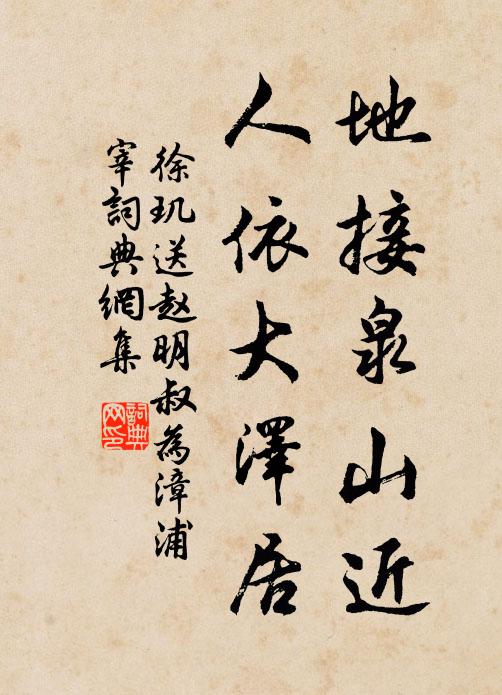 地接泉山近
人依大澤居
徐玑送赵明叔為漳浦
宰詞典網集
詞典
网印